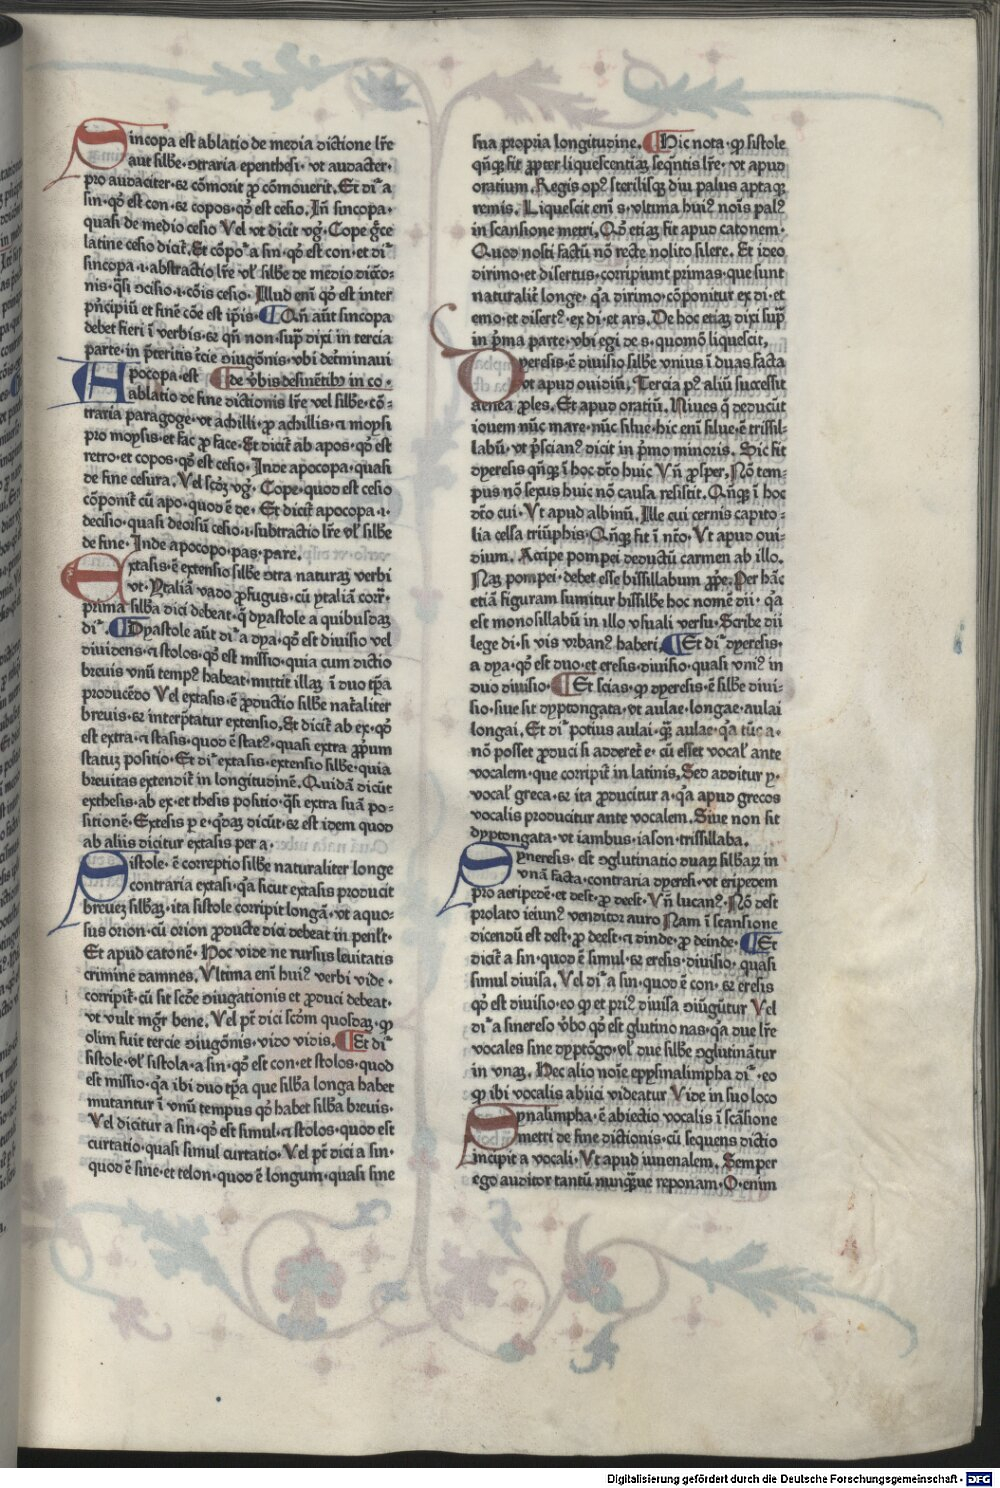 Sincopa est ablatio de media dictione lr̄e
aut sillbe · ꝯtraria epenthesi · vt audacter ·
pro audaciter · ⁊ cōmorit ꝓ cōmouerit. Et di᷑ a
sin · qd̓ est con · ⁊ copos · qd̓ est cesio. Iñ sincopa ·
quasi de medio cesio Vel vt dicit vg᷑. Cope grece
latine cesio dicit᷑. Et cōpo᷑ a sin · qd̓ est con · et di᷑
sincopa · i · abstractio lr̄e vl̓ sillbe de medio dictio-
nis · q̄si ꝯcisio · i · cōis cesio · Illud em̄ qd̓ est inter
prīcipiū et finē cōe est ip̄is · Qn̄ aūt sincopa
debet fieri ī verbis · ⁊ qn̄ non · sup᷑ dixi in tercia
parte · in p̄teritis t̄cie ꝯiugōnis · vbi det̄minaui
Apocopa · est de v̓bis desinētib᷒ in co ·
ablatio de fine dictionis lr̄e vel sillbe · cō-
traria paragoge · vt achilli · ꝓ achillis · ⁊ moysi
pro moysis · et fac ꝓ face · Et dicit᷑ ab apos · qd̓ est
retro · et copos · qd̓ est cesio. Inde apocopa · quasi
de fine cesura. Vel scd̓ꝫ vg᷑. Cope · quod est cesio
cōponit᷑ cū apo · quod ē de · Et dicit᷑ apocopa · i ·
decisio · quasi deorsū cesio · i · subtractio lr̄e vl̓ sillbe
de fine · Inde apocopo · pas · pare.
Extasis · ē extensio sillbe ꝯtra naturaꝫ verbi
vt · Ytaliā vado ꝓfugus · cū ytaliā corr᷑ ·
prima sillba dici debeat · q̄ dyastole a quibusdaꝫ
di᷑ · Dyastole aūt di᷑ a dya · qd̓ est diuisio vel
diuidens · ⁊ stolos · qd̓ est missio · quia cum dictio
breuis vnū temp᷒ habeat · mittit illaꝫ ī duo tp̄a
producēdo Vel extasis · ē ꝓductio sillbe nat̄aliter
breuis · ⁊ interp̄tatur extensio. Et dicit᷑ ab ex · qd̓
est extra · ⁊ stasis · quod ē stat᷒ · quasi extra ꝓp̄um
statuꝫ positio · Et di᷑ extasis · extensio sillbe · quia
breuitas extendit᷑ in longitudinē. Quidā dicūt
exthesis · ab ex · et thesis positio · q̄si extra suā po-
sitionē. Extesis p e · q̄daꝫ dicūt · ⁊ est idem quod
ab aliis dicitur extasis per a ·
Sistole · ē correptio sillbe naturaliter longe
contraria extasi · q̄a sicut extasis producit
breueꝫ sillbaꝫ · ita sistole corripit longā · vt aquo-
sus orion · cū orion ꝓducte dici debeat in penl̄t ·
Et apud catonē · Hoc vide ne rursus leuitatis
crimine damnes. Vltima em̄ hui᷒ verbi vide ·
corripit᷑ · cū sit scd̄e ꝯiugationis et ꝓduci debeat ·
vt vult mḡr bene. Vel pt̄ dici scd̓m quosdaꝫ · ꝙ
olim fuit tercie ꝯiugōnis · vido vidis. Et di᷑
sistole · vl̓ sistola · a sin · qd̓ est con · et stolos · quod
est missio · q̄a ibi duo tp̄a que sillba longa habet
mutantur ī vnū tempus qd̓ habet sillba breuis ·
Vel dicitur a sin · qd̓ est simul · ⁊ stolos · quod est
curtatio · quasi simul curtatio · Vel pt̄ dici a sin ·
quod ē sine · et telon · quod ē longum · quasi sine
sua propria longitudine. Hic nota · ꝙ sistole
qn̄qꝫ fit ꝓpter liquescentiaꝫ seqn̄tis lr̄e · vt apud
oratium. Regis op᷒ sterilisqꝫ diu palus aptaqꝫ
remis. Liquescit em̄ s · vltima hui᷒ nōis pal᷒
in scansione metri. Qd̓ etiaꝫ fit apud catonem ·
Quod nosti factū nō recte nolito silere. Et ideo
dirimo · et disertus · corripiunt primas · que sunt
naturalit᷑ longe · q̄a dirimo · cōponitur ex di · et
emo · et disert᷒ · ex di · et ars. De hoc etiaꝫ dixi sup᷑
in p̄ma parte · vbi egi de s · quomō liquescit.
Dyeresis · ē diuisio sillbe vnius ī duas facta
vt apud ouidiū. Tercia p᷒ aliū successit
aenea ꝓles. Et apud oratiū. Niues q̄ deducūt
iouem nūc mare · nūc silue · hic em̄ silue · ē trissil-
labū · vt p̄scian᷒ dicit in p̄mo minoris. Sic fit
dyeresis qn̄qꝫ ī hoc dt̄o huic Vn̄ ꝓsper. Nō tem-
pus nō sexus huic nō causa resistit. Qn̄qꝫ ī hoc
dt̄o cui. Vt apud albinū. Ille cui cernis capito-
lia celsa triūphis. Qn̄qꝫ fit ī nt̄o. Vt apud oui-
dium. Accipe pompei deductū carmen ab illo.
Naꝫ pompei · debet esse bissillabum ꝓpe. Per hāc
etiā figuram sumitur bissilbe hoc nomē dii · q̄a
est monosillabū in illo vsuali versu · Scribe dii
lege di · si vis vrban᷒ haberi. Et di᷑ dyeresis ·
a dya · qd̓ est duo · et eresis · diuisio · quasi vni᷒ in
duo diuisio · Et scias · ꝙ dyeresis · ē sillbe diui-
sio · siue sit dyptongata · vt aulae · longae · aulai
longai. Et di᷑ potius aulai · q̄ꝫ aulae · q̄a tūc a ·
nō posset ꝓduci si adderet᷑ e · cū esset vocal᷒ ante
vocalem · que corripit᷑ in latinis. Sed additur y ·
vocal᷒ greca · ⁊ ita ꝓducitur a · q̄a apud grecos
vocalis producitur ante vocalem. Siue non sit
dyptongata · vt iambus · iason · trissillaba.
Syneresis · est ꝯglutinatio duaꝝ sillbaꝝ in
vnā facta · contraria dyeresi · vt eripedem
pro aeripedē · et dest · ꝓ deest · Vn̄ lucan᷒ · Nō dest
prolato ieiun᷒ venditor auro Nam ī scansione
dicendū est dest · ꝓ deest · ⁊ dinde · ꝓ deinde · Et
dicit᷑ a sin · quod ē simul · ⁊ eresis · diuisio · quasi
simul diuisa. Vel di᷑ a sin · quod ē con · ⁊ eresis
qd̓ est diuisio · eo ꝙ et pri᷒ diuisa ꝯiūgūtur Vel
di᷑ a sinereso v̓bo qd̓ est glutino nas · q̄a due lr̄e
vocales sine dyptōgo · vl̓ due sillbe ꝯglutinātur
in vnaꝫ. Hec alio noīe epysinalimpha di᷑ · eo
ꝙ ibi vocalis abiici videatur Vide in suo loco
Synalimpha · ē abiectio vocalis ī scāsione
metri de fine dictionis · cū sequens dictio
incipit a vocali · Vt apud iuuenalem. Semper
ego auditor tantū nunq̄ꝫue reponam · O · enim
Digitalisierung gefördert durch die Deutsche Forschungsgemeinschaft - DFG